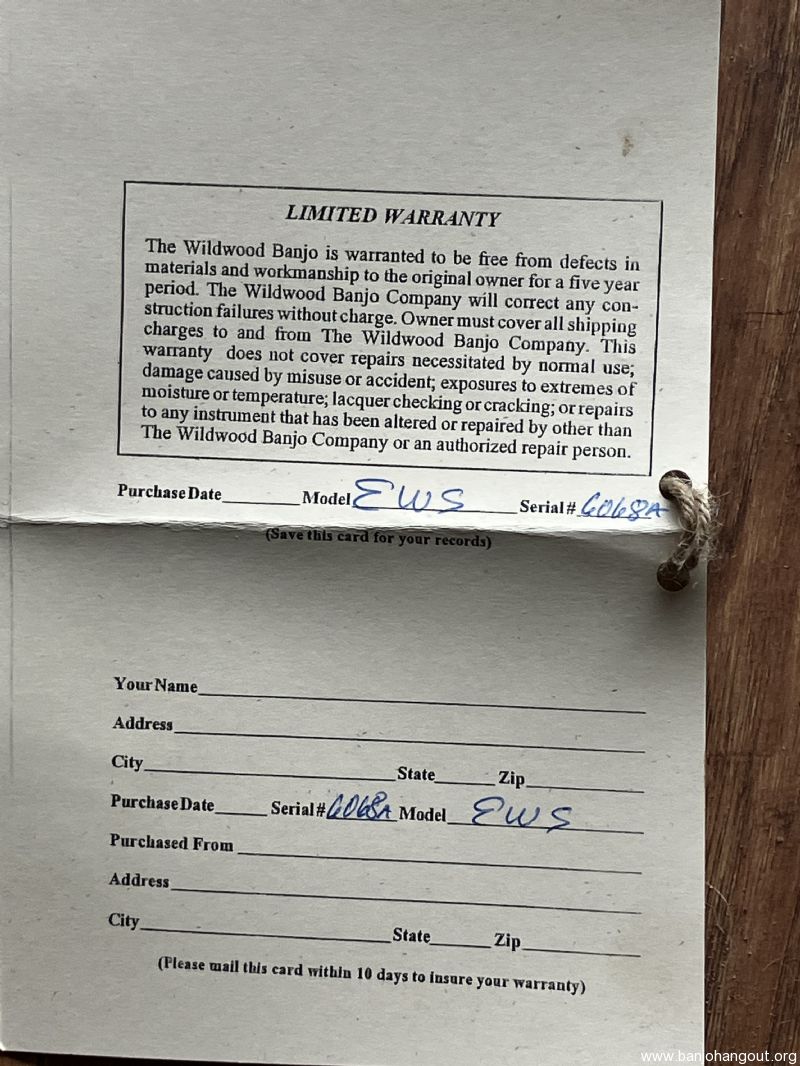 LIMITED WARRANTY
The Wildwood Banjo is warranted to be free from defects in
materials and workmanship to the original owner for a five year
period. The Wildwood Banjo Company will correct any con-
struction failures without charge. Owner must cover all shipping
charges to and from The Wildwood Banjo Company. This
warranty does not cover repairs necessitated by normal use;
damage caused by misuse or accident; exposures to extremes of
moisture or temperature; lacquer checking or cracking; or repairs
to any instrument that has been altered or repaired by other than
The Wildwood Banjo Company or an authorized repair person.
Purchase Date______ Model EWS Serial # 6068A
(Save this card for your records)
Your Name______
Address______
City______ State______ Zip______
Purchase Date______ Serial # 6068A Model EWS
Purchased From______
Address______
City______ State______ Zip______
(Please mail this card within 10 days to insure your warranty)
www.banjohangout.org